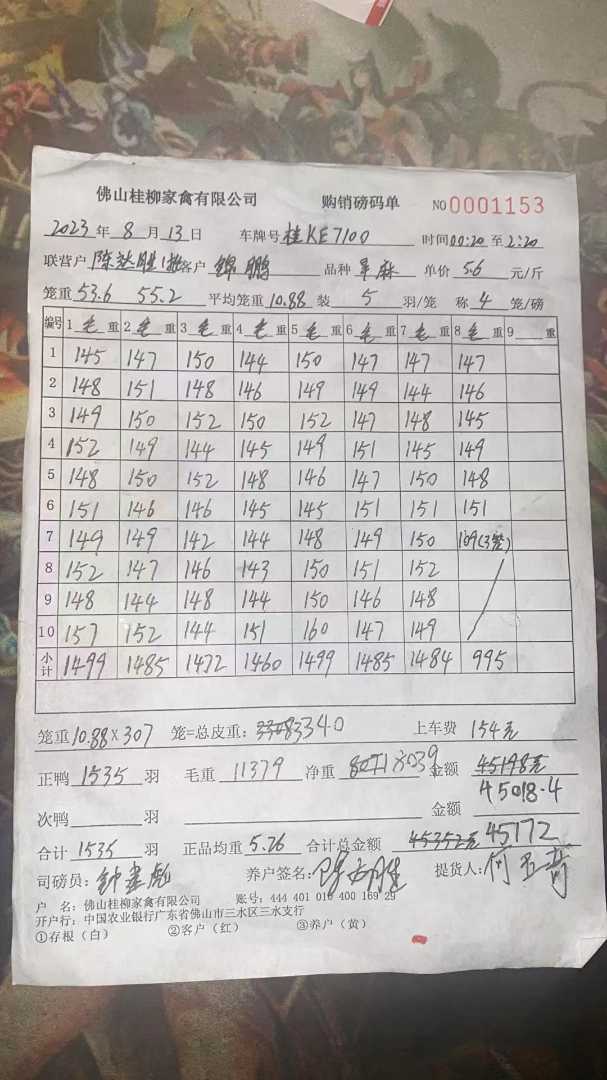 佛山桂柳家禽有限公司 购销磅码单 NO 0001153
2023 年 8 月 13 日 车牌号 桂KE7100 时间 00:20 至 2:20
联营户 陈达胜1批 客户 锦鹏 品种 单价 5.6 元/斤
笼重 53.6 55.2 平均笼重 10.88 装 5 羽/笼 称 4 笼/磅
编号 1 毛 重 2 毛 重 3 毛 重 4 毛 重 5 毛 重 6 毛 重 7 毛 重 8 毛 重 9 重
1 145 147 150 144 150 147 147 147
2 148 151 148 146 149 149 144 146
3 149 150 152 150 152 147 148 145
4 152 149 144 145 149 151 145 149
5 148 150 152 148 146 147 150 148
6 151 146 146 145 145 151 151 151
7 149 149 142 144 148 149 150 109(3笼)
8 152 147 146 143 150 151 152
9 148 144 148 144 150 146 148
10 157 152 144 151 160 147 149
小计 1499 1485 1472 1460 1499 1485 1484 995
笼重 10.88×307 笼=总皮重： 3340 上车费 154元
正鸭 1535 羽 毛重 11379 净重 8039 金额 45198元
45018.4
次鸭 羽 金额
合计 1535 羽 正品均重 5.26 合计总金额 45352元 45172
司磅员： 钟 彪 养户签名： 提货人： 何
户 名：佛山桂柳家禽有限公司 账号：444 401 010 400 169 29
开户行：中国农业银行广东省佛山市三水区三水支行
①存根（白） ②客户（红） ③养户（黄）